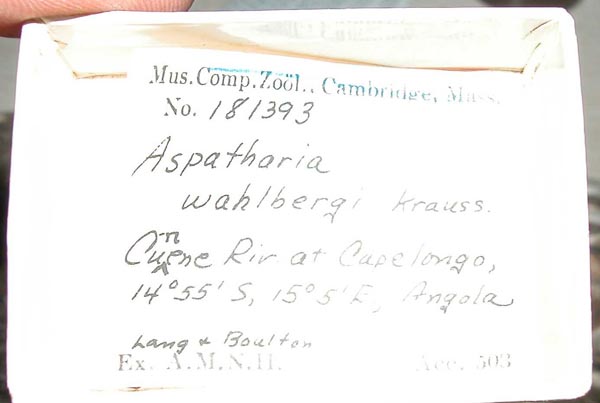 Mus. Comp. Zoöl., Cambridge, Mass.
No. 181393
Aspatharia
wahlbergi Krauss.
Cunene Riv at Capelongo,
14°55' S, 15°5' E, Angola
Lang & Boulton
Ex. A.M.N.H. Acc. 503